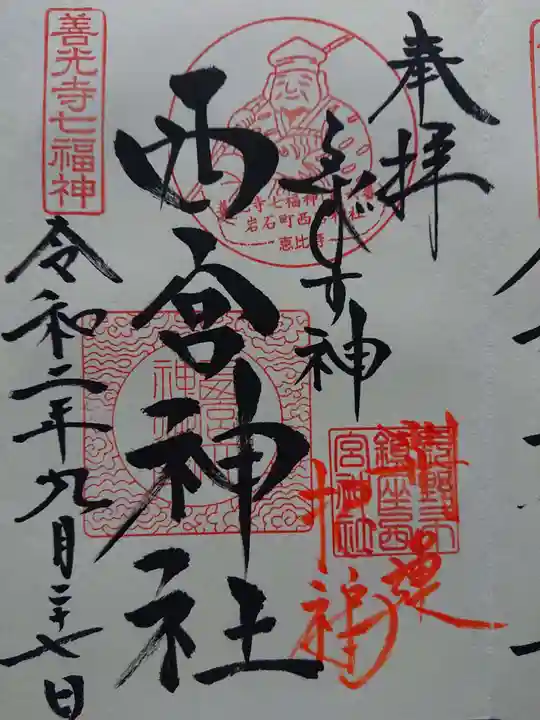 奉拝
ゑびす神
西宮神社
令和二年九月二十七日
善光寺七福神
善光寺七福神
岩石町西宮神社
恵比寿
長野市
鎮座西
宮神社
招福